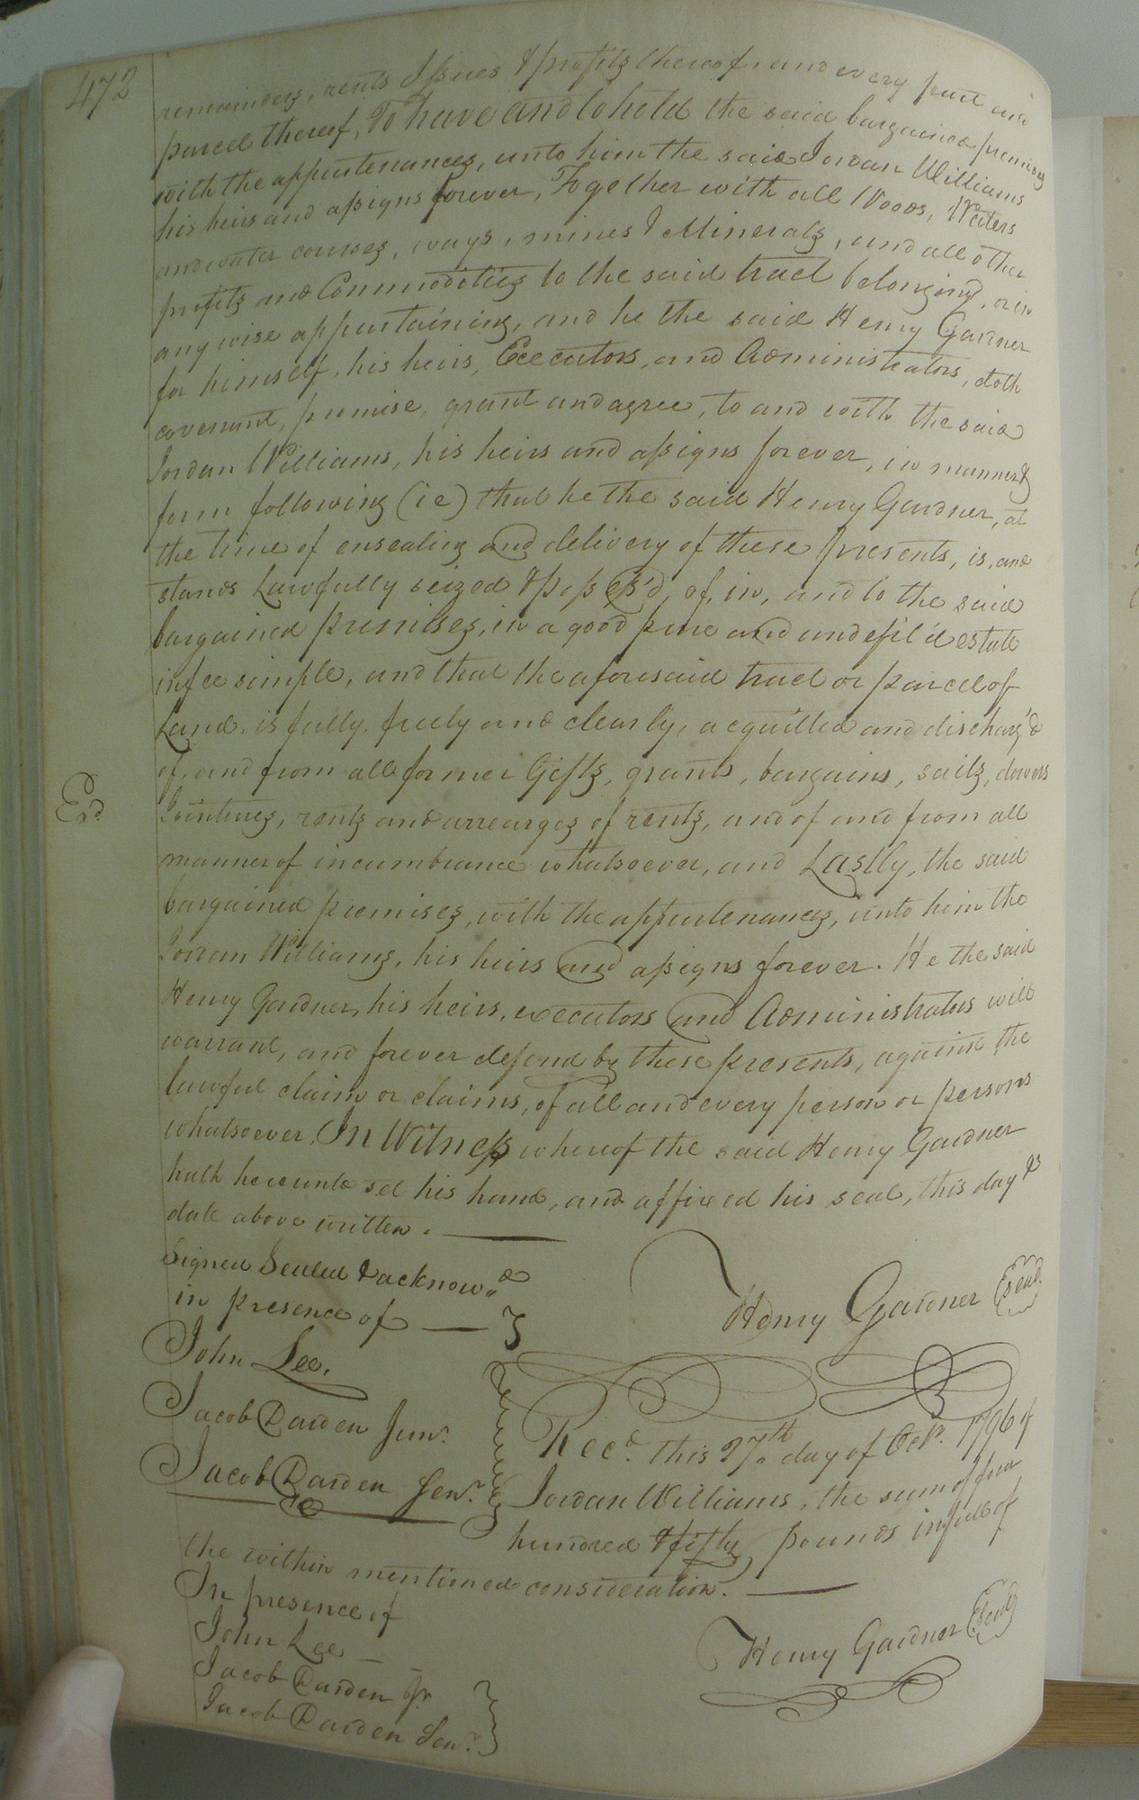 472
remainders, rents Issues & profits thereof, and every part and
parcel thereof, To have and to hold the said bargained premises
with the appurtenances, unto him the said Jordan Williams
his heirs and assigns forever, Together with all Woods, Waters
and water courses, ways, mines & Minerals, and all other
profits and Commodities to the said tract belonging, or in
any wise appurtaining, and he the said Henry Gardner
for himself, his heirs, Executors, and Administrators, doth
covenant, promise, grant and agree, to and with the said
Jordan Williams, his heirs and assigns forever, in manner &
form following (ie) that he the said Henry Gardner, at
the time of ensealing and delivery of these presents, is, and
stands Lawfully seized & possess'd, of, in, and to the said
bargained premises, in a good pure and undefil'd estate
in fee simple, and that the aforesaid tract or parcel of
Land, is fully, freely and clearly, acquitted and discharg'd
of, and from all former Gifts, grants, bargains, sails, dowers
Jointures, rents and arrearges of rents, and of and from all
Ex.d
manner of incumbrance whatsoever, and Lastly, the said
bargained premises, with the appurtenances, unto him the
Jordan Williams, his heirs and assigns forever. He the said
Henry Gardner, his heirs, executors and Administrators will
warrant, and forever defend by these presents, against the
lawful claim or claims, of all and every person or persons
whatsoever. In Witness whereof the said Henry Gardner
hath hereunto set his hand, and affixed his seal, this day &
date above written.
Signed Sealed & acknow.d
in presence of
Henry Gardner (seal)
John Lee.
Jacob Darden Junr.
Jacob Darden Senr.
Rec.d this 27th day of Octr. 1796 of
Jordan Williams, the sum of four
hundred & fifty pounds in full of
the within mentioned consideration.
In presence of
John Lee
Jacob Darden Jr
Jacob Darden Senr.
Henry Gardner (seal)